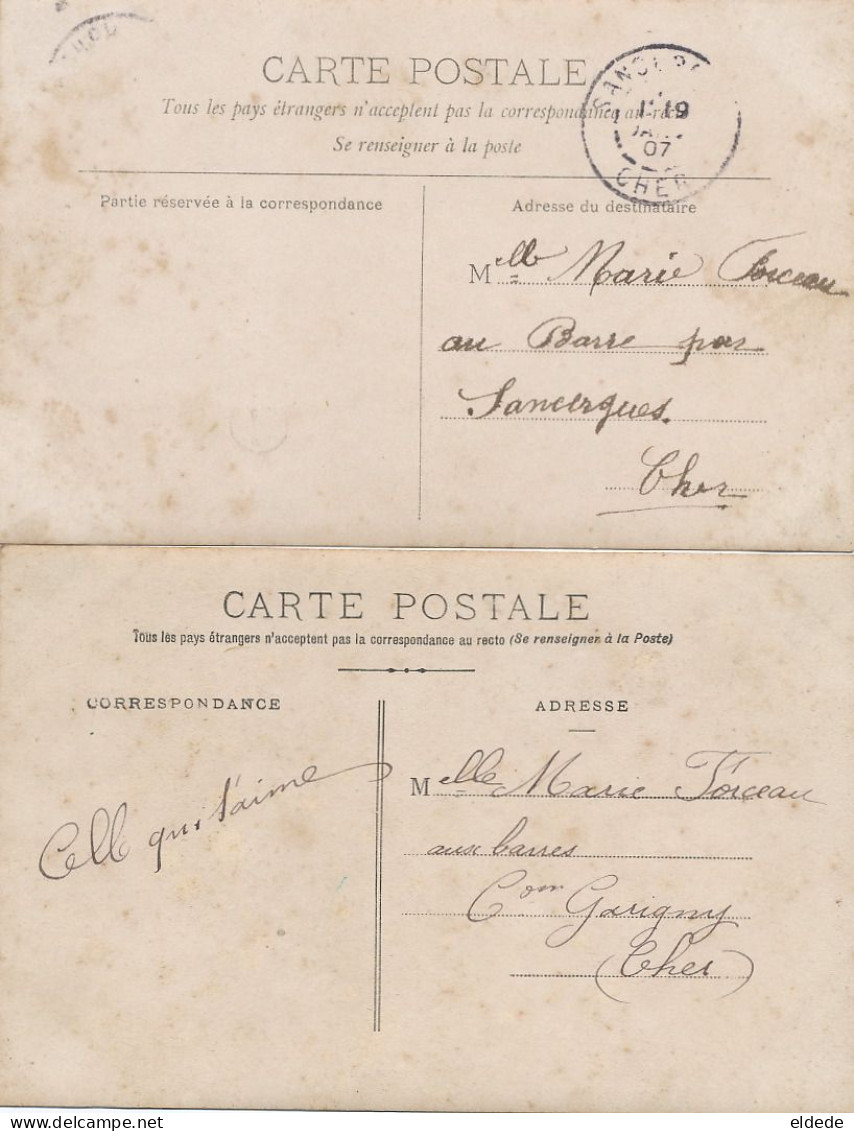 CARTE POSTALE
Tous les pays étrangers n'acceptent pas la correspondance au recto
Se renseigner à la poste
19
07
CHER
Partie réservée à la correspondance
Adresse du destinataire
Melle Marie Forceau
au Barre par
Sancergues.
Cher
CARTE POSTALE
Tous les pays étrangers n'acceptent pas la correspondance au recto (Se renseigner à la Poste)
CORRESPONDANCE
ADRESSE
Celle qui t'aime
Melle Marie Forceau
aux barres
Com Garigny
(Cher)
eldede